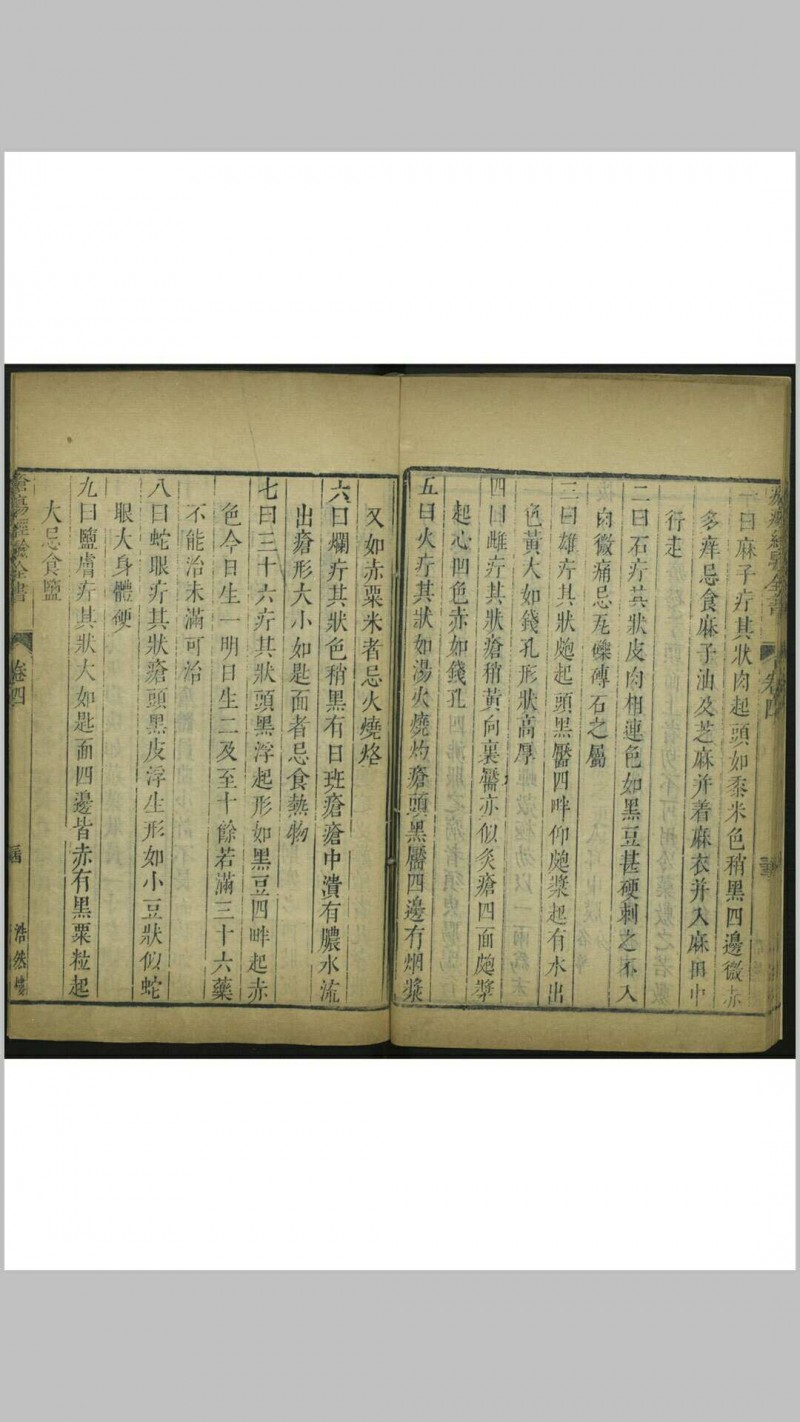 一曰麻子疔其狀肉起頭如黍米色稍黑四邊微赤
多痒忌食麻子油及芝麻并着麻衣并入麻田中
行走
二曰石疔其狀皮肉相連色如黑豆甚硬刺之不入
肉微痛忌瓦礫磚石之屬
三曰雄疔其狀皰起頭黑黶四畔仰皰漿起有水出
色黃大如錢孔形狀高厚
四曰雌疔其狀瘡稍黃向裏黶亦似灸瘡四面皰漿
起心凹色赤如錢孔
五曰火疔其狀如湯火燒灼瘡頭黑黶四邊有烟漿
又如赤粟米者忌火燒烙
六曰爛疔其狀色稍黑有日班瘡瘡中潰有膿水流
出瘡形大小如匙面者忌食熱物
七曰三十六疔其狀頭黑浮起形如黑豆四畔起赤
色今日生一明日生二及至十餘若滿三十六藥
不能治未滿可治
八曰蛇眼疔其狀瘡頭黑皮浮生形如小豆狀似蛇
眼大身體硬
九曰鹽膚疔其狀大如匙面四邊皆赤有黑粟粒起
大忌食鹽
瘍經驗全書
卷四
浩然樓